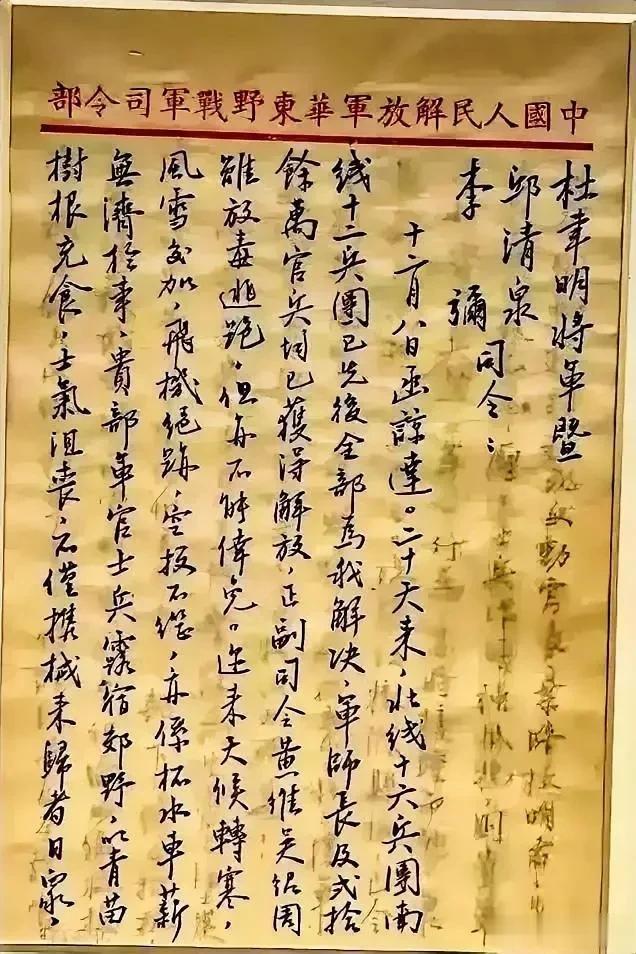 中國人民解放軍華東野戰軍司令部
杜聿明將军暨
邱清泉
李彌司令：
十二月八日函諒達。二十天来，北线十六兵團南
线十二兵團已先後全部爲我解决，軍師長及弍拾
餘萬官兵均已獲得解放，正副司令黄維吴紹周
雖放毒逃跑，但亦不能倖免。近来天候轉寒，
風雪交加，飛機绝跡，空投不继，亦係杯水車薪
無濟於事，貴部軍官士兵露宿郊野，以青苗
樹根充食，士氣沮喪，不僅携械来歸者日衆，